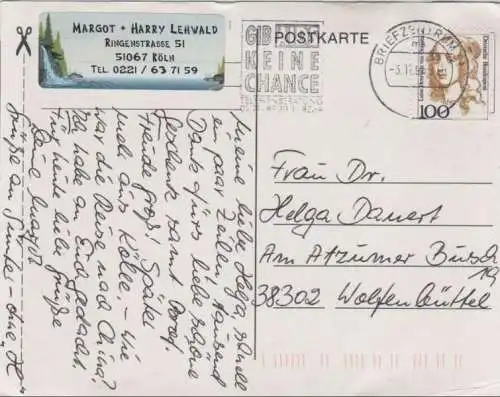 MARGOT + HARRY LEHWALD
RINGENSTRASSE 51
51067 KÖLN
TEL. 0221 / 63 71 59
GIB AIDS
KEINE
CHANCE
POSTKARTE
BRIEFZENTRUM
Deutsche Bundespost
100
Meine liebe Helga, schnell
ein paar Zeilen. Tausend
Dank für's liebe schöne
Geschenk samt
Freude groß! Später
mehr aus Kölle. – Wie
war die Reise nach China?
Ich habe an Euch gedacht.
Für heute liebe Grüße
Deine Margot
Grüße an
Frau Dr.
Helga Danert
Am Atzumer Busch
19
38302 Wolfenbüttel